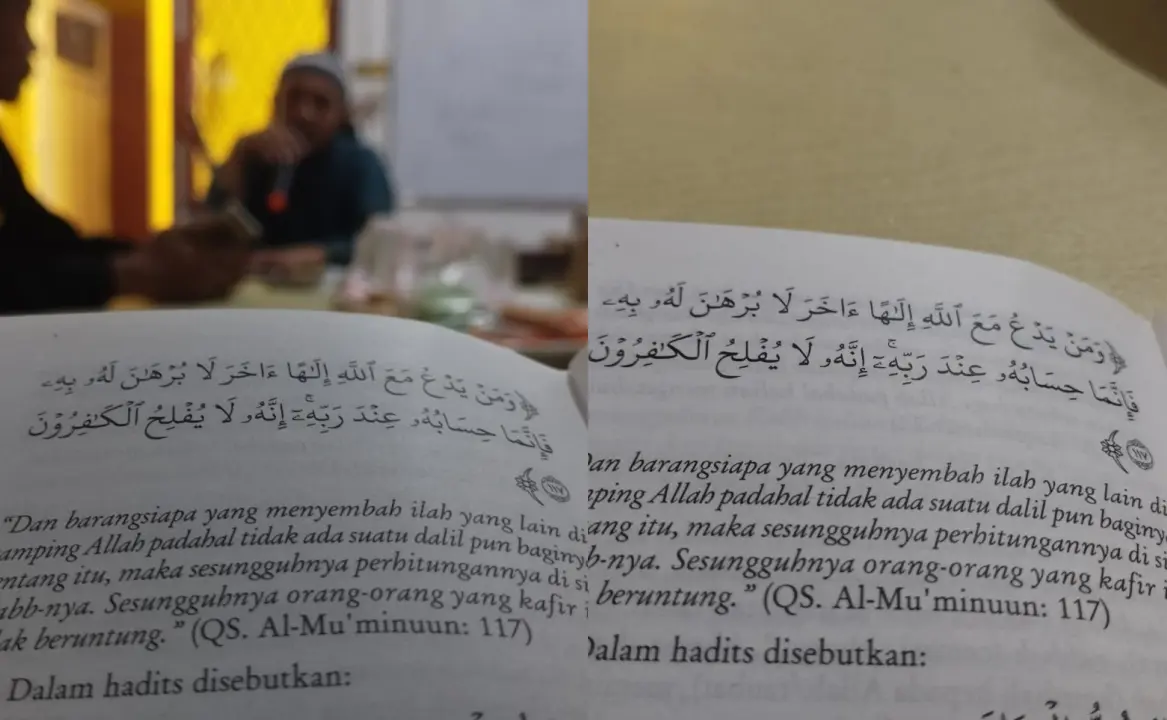 ﴿وَمَنْ يَدْعُ مَعَ ٱللَّهِ إِلَـٰهًا ءَاخَرَ لَا بُرْهَـٰنَ لَهُۥ بِهِۦ
فَإِنَّمَا حِسَابُهُۥ عِندَ رَبِّهِۦٓ ۚ إِنَّهُۥ لَا يُفْلِحُ ٱلْكَـٰفِرُوْنَ
﴾ ١١٧
“Dan barangsiapa yang menyembah ilah yang lain di
amping Allah padahal tidak ada suatu dalil pun baginy
ntang itu, maka sesungguhnya perhitungannya di si
abb-nya. Sesungguhnya orang-orang yang kafir
ak beruntung.” (QS. Al-Mu'minuun: 117)
Dalam hadits disebutkan:
﴿وَمَنْ يَدْعُ مَعَ ٱللَّهِ إِلَـٰهًا ءَاخَرَ لَا بُرْهَـٰنَ لَهُۥ بِهِۦ
فَإِنَّمَا حِسَابُهُۥ عِنْدَ رَبِّهِۦٓ ۚ إِنَّهُۥ لَا يُفْلِحُ ٱلْكَـٰفِرُوْنَ
﴾ ١١٧
Dan barangsiapa yang menyembah ilah yang lain di
ping Allah padahal tidak ada suatu dalil pun baginy
ang itu, maka sesungguhnya perhitungannya di si
b-nya. Sesungguhnya orang-orang yang kafir
beruntung.” (QS. Al-Mu'minuun: 117)
Dalam hadits disebutkan: